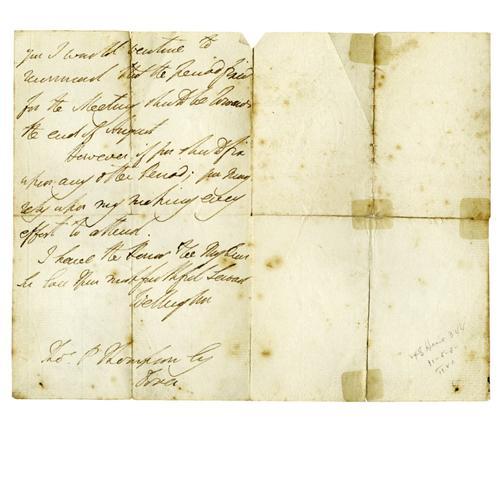 you I would venture to
recommend that the Period fixed
for the Meeting should be towards
the end of August
However if you should fix
upon any other Period; you may
rely upon my making every
effort to attend.
I have the honor to be My dear
Sir Your most faithful Servant
Wellington
Thos. P Thompson Esq